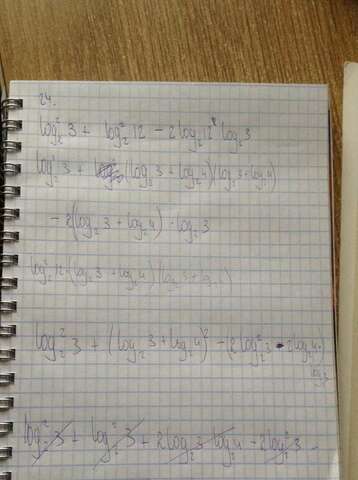 24.
log₂²3 + log₂²12 - 2log₂12 · log₂3
log₂²3 + (log₂3 + log₂4)(log₂3 + log₂4)
- 2(log₂3 + log₂4) · log₂3
log₂²3 + (log₂3 + log₂4)² - (2log₂²3 - 2log₂4 ·
log₂3
log₂²3 + log₂²3 + 2log₂3 log₂4 - 2log₂²3 -